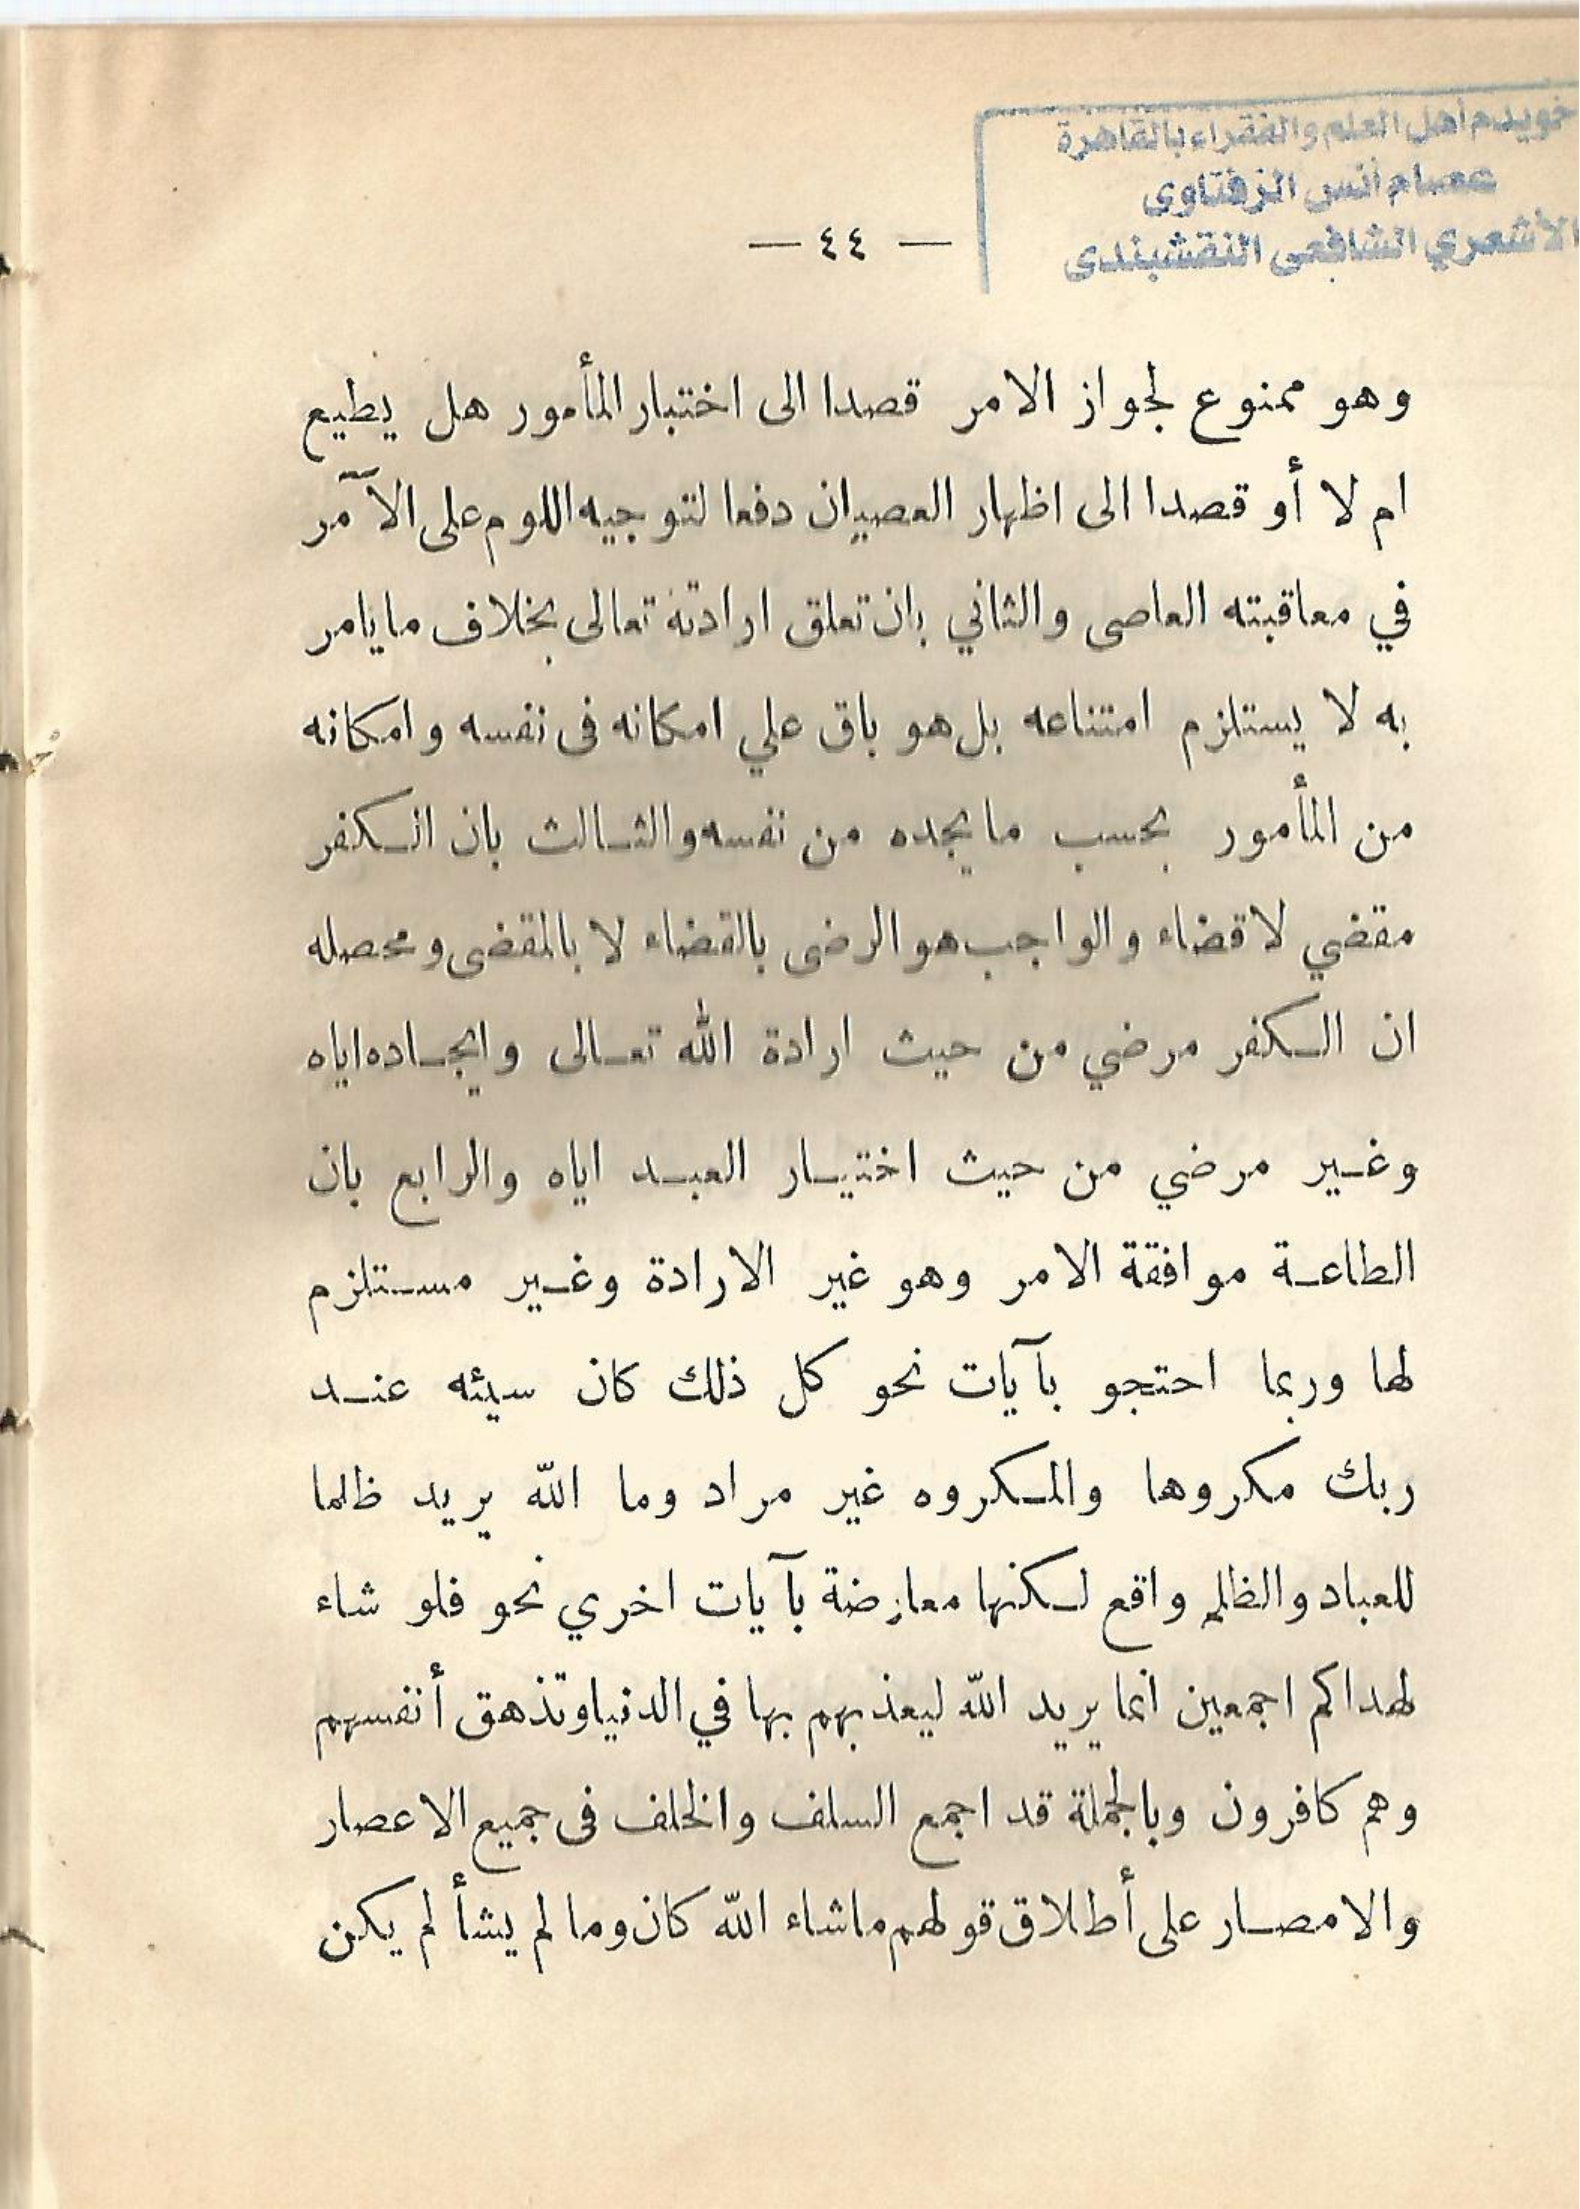 خويدم أهل العلم والفقراء بالقاهرة
عصام أنس الزفتاوى
الأشعري الشافعى النقشبندى
— ٤٤ —
وهو ممنوع لجواز الامر قصدا الى اختبار المأمور هل يطيع
ام لا أو قصدا الى اظهار العصيان دفعا لتوجيه اللوم على الآمر
في معاقبته العاصى والثاني بان تعلق ارادته تعالى بخلاف ما يامر
به لا يستلزم امتناعه بل هو باق علي امكانه فى نفسه وامكانه
من المأمور بحسب ما يجده من نفسه والثالث بان الكفر
مقضي لا قضاء والواجب هو الرضى بالقضاء لا بالمقضى ومحصله
ان الكفر مرضي من حيث ارادة الله تعالى وايجاده اياه
وغير مرضي من حيث اختيار العبد اياه والرابع بان
الطاعة موافقة الامر وهو غير الارادة وغير مستلزم
لها وربما احتجو بآيات نحو كل ذلك كان سيئه عند
ربك مكروها والمكروه غير مراد وما الله يريد ظلما
للعباد والظلم واقع لكنها معارضة بآيات اخري نحو فلو شاء
لهداكم اجمعين انما يريد الله ليعذبهم بها في الدنيا وتذهق أنفسهم
وهم كافرون وبالجملة قد اجمع السلف والخلف فى جميع الاعصار
والامصار على أطلاق قولهم ماشاء الله كان وما لم يشأ لم يكن